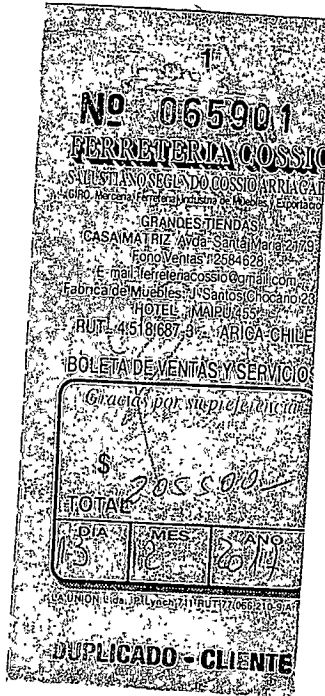 1
Nº 065901
FERRETERIA COSSIO
SALUSTIANO SEGUNDO COSSIO ARRIAGAD
GIRO: Mercería, Ferretería, Industria de Muebles y Exportado
GRANDES TIENDAS
CASA MATRIZ: Avda. Santa María 2179
Fono Ventas: 2584628
E-mail: ferreteriacossio@gmail.com
Fabrica de Muebles: J. Santos Chocano 23
HOTEL: MAIPU 455
RUT: 4.518.687-3 ARICA-CHILE
BOLETA DE VENTAS Y SERVICIO
Gracias por su preferencia
$ 205500-
TOTAL
DIA MES AÑO
13 2
LA UNION Ltda. P. Lynch 711 RUT 77.066.210-9/A
DUPLICADO - CLIENTE